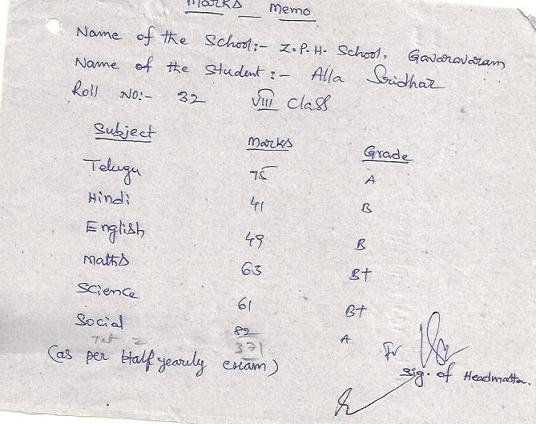 Marks Memo
Name of the School:- Z.P.H. School, Gavaravaram
Name of the Student:- Alla Sridhar
Roll No:- 32 VIII Class
Subject Marks Grade
Telugu 75 A
Hindi 41 B
English 49 B
Maths 63 B+
Science 61 B+
Social 82 A
371
(as per Half yearly exam)
Sig. of Headmaster.